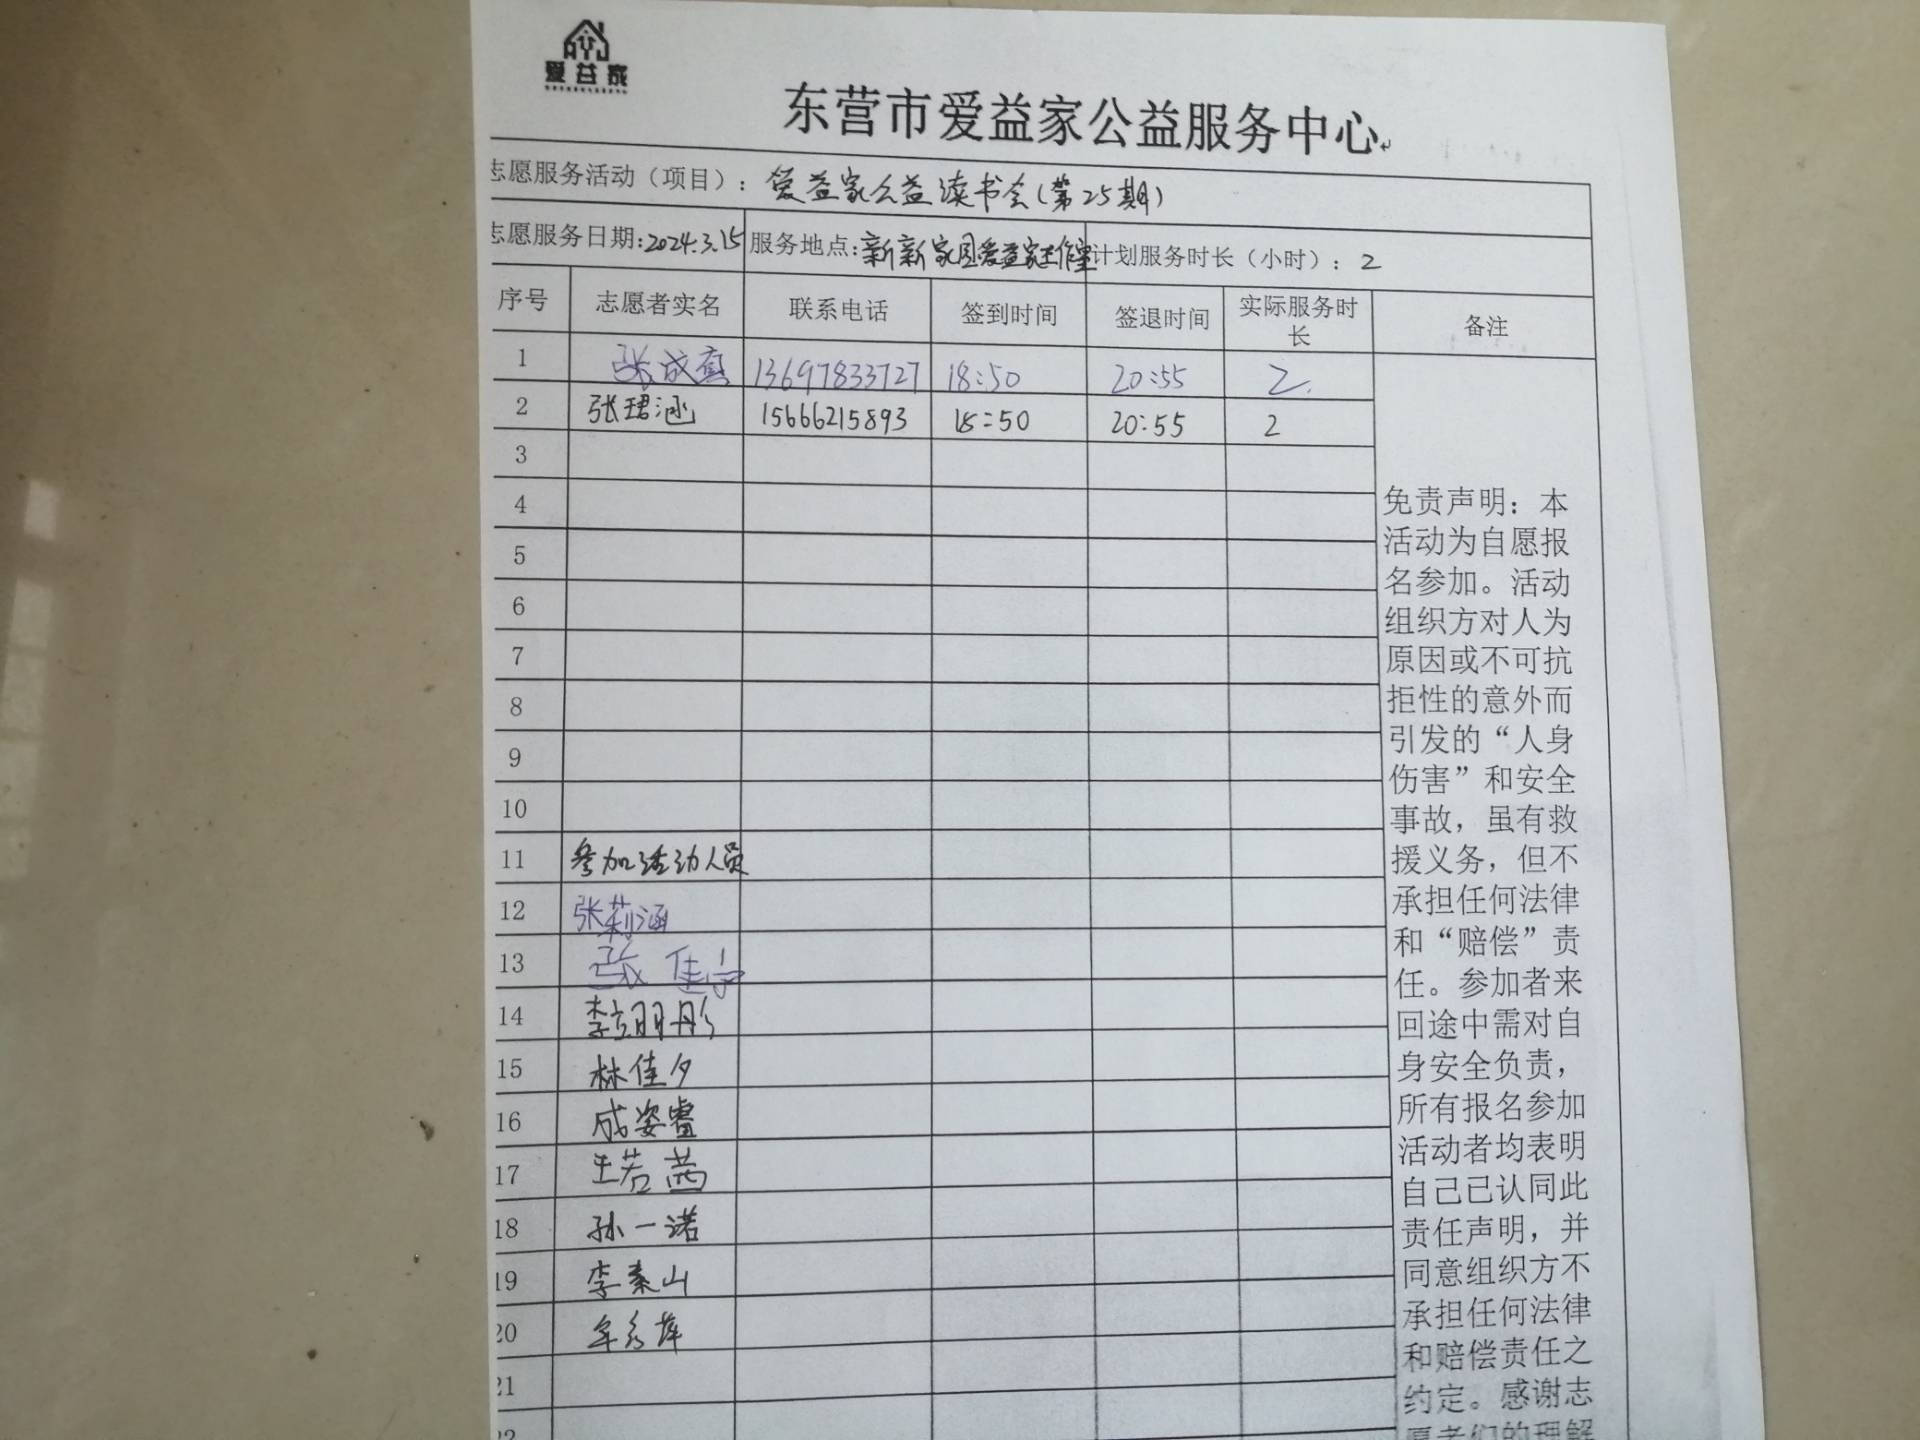 爱益家
东营市爱益家公益服务中心
志愿服务活动（项目）：爱益家公益读书会（第25期）
志愿服务日期:2024.3.15 服务地点:新新家园爱益家工作室 计划服务时长（小时）：2
序号 志愿者实名 联系电话 签到时间 签退时间 实际服务时长 备注
1 张成 13697833727 18:50 20:55 2.
2 张珺涵 15666215893 18:50 20:55 2
3
4
5
6
7
8
9
10
11 参加活动人员
12 张莉涵
13 张佳宁
14 李翊彤
15 林佳夕
16 成姿睿
17 王若茜
18 孙一诺
19 李秦山
20
21
22
免责声明：本
活动为自愿报
名参加。活动
组织方对人为
原因或不可抗
拒性的意外而
引发的“人身
伤害”和安全
事故，虽有救
援义务，但不
承担任何法律
和“赔偿”责
任。参加者来
回途中需对自
身安全负责，
所有报名参加
活动者均表明
自己已认同此
责任声明，并
同意组织方不
承担任何法律
和赔偿责任之
约定。感谢志
愿者们的理解